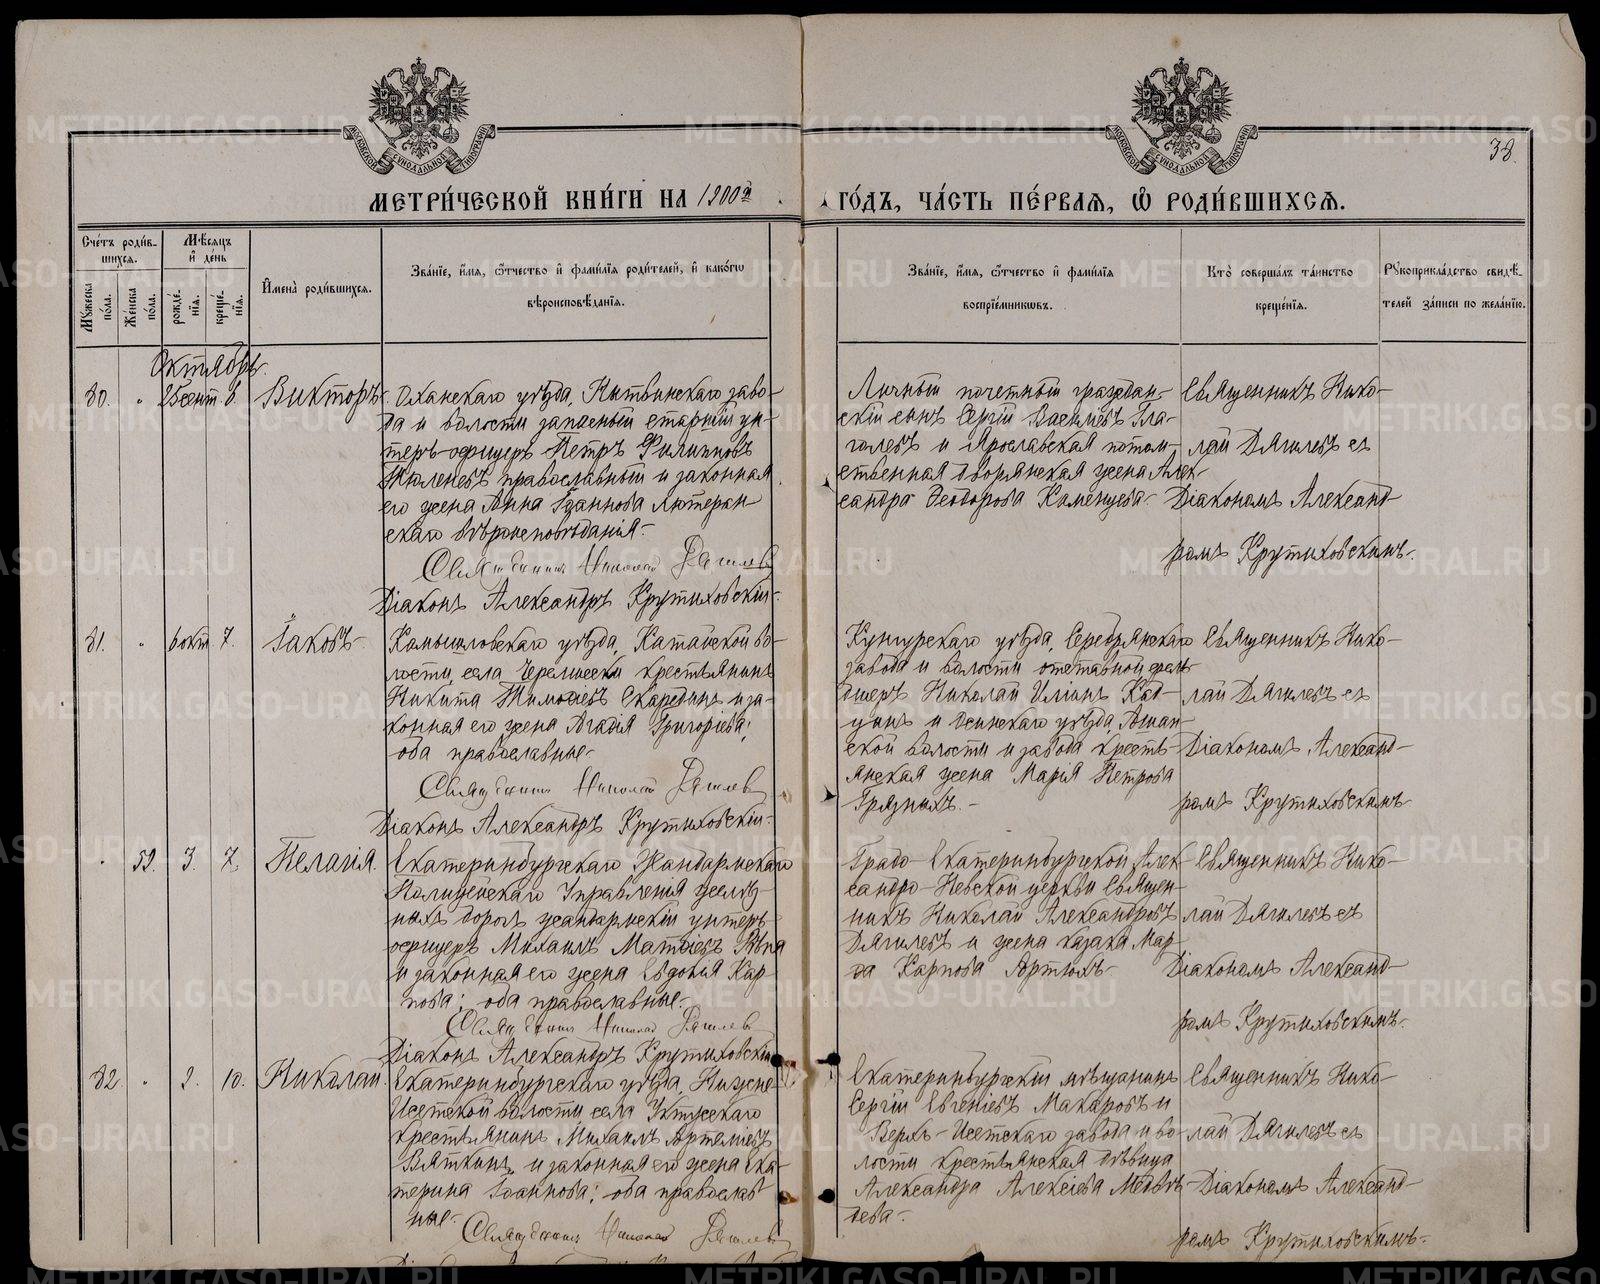 МОСКОВСКОЙ СѴНОДАЛЬНОЙ ТИПОГРАФІИ
МОСКОВСКОЙ СѴНОДАЛЬНОЙ ТИПОГРАФІИ
38.
МЕТРИ́ЧЕСКОЙ КНИ́ГИ НА 1900й
ГО́ДЪ, ЧА́СТЬ ПЕ́РВАѦ, Ѽ РОДИ́ВШИХСѦ.
Сче́тъ роди́в-
шихсѧ.
Мꙋ́жеска по́ла.
Же́нска по́ла.
Мѣ́сѧцъ и҆ де́нь
рожде́-нїѧ.
креще́-нїѧ.
И҆мена̀ роди́вшихсѧ.
Зва́нїе, и҆́мѧ, ѻ҆́тчество и҆ фами́лїѧ роди́телей, и҆ како́гѡ
вѣроисповѣ́данїѧ.
Зва́нїе, и҆́мѧ, ѻ҆́тчество и҆ фами́лїѧ
воспрїе́мникѡвъ.
Кто̀ соверша́лъ та́инство
креще́нїѧ.
Рꙋкоприкла́дство свидѣ́-
телей за́писи по жела́нїю.
Октябрь.
80. " 25 сент. 8. Викторъ.
Оханскаго уѣзда, Нытвинскаго заво-
да и волости запасный старшій ун-
теръ-офицеръ Петръ Филипповъ
Тюленевъ православный и законная
его жена Анна Іоаннова лютеран-
скаго вѣроисповѣданія.
Священникъ Николай Дягилевъ
Діаконъ Александръ Крутиховскій.
Личный почетный граждан-
скій сынъ Сергій Васильевъ Гла-
голевъ и Ярославская потом-
ственная дворянская жена Алек-
сандра Ѳеодорова Каменцева.
Священникъ Нико-
лай Дягилевъ съ
Діакономъ Александ-
ромъ Крутиховскимъ.
81. " 6 окт. 7. Іаковъ.
Камышловскаго уѣзда, Катайской во-
лости, села Черемисски крестьянинъ
Никита Тимоѳеевъ Скарединъ и за-
конная его жена Агафія Григоріева;
оба православные.
Священникъ Николай Дягилевъ
Діаконъ Александръ Крутиховскій.
Кунгурскаго уѣзда, Серебрянскаго
завода и волости отставной фельд-
шеръ Николай Иліинъ
и Осинскаго уѣзда, Ашап-
ской волости и завода кресть-
янская жена Марія Петрова
Грязныхъ.
Священникъ Нико-
лай Дягилевъ съ
Діакономъ Александ-
ромъ Крутиховскимъ.
" 59. 3. 7. Пелагія.
Екатеринбургскаго Жандармскаго
Полицейскаго Управленія желѣз-
ныхъ дорогъ жандармскій унтеръ-
офицеръ Михаилъ Матвіевъ Рѣпа
и законная его жена Евдокія Кар-
пова; оба православные.
Священникъ Николай Дягилевъ
Діаконъ Александръ Крутиховскій.
Градо-Екатеринбургской Алек-
сандро-Невской церкви Священ-
никъ Николай Александровъ
Дягилевъ и жена казака Мар-
ѳа Карпова Артюхъ.
Священникъ Нико-
лай Дягилевъ съ
Діакономъ Александ-
ромъ Крутиховскимъ.
82. " 9. 10. Николай.
Екатеринбургскаго уѣзда, Нижне-
Исетской волости села Уктусскаго
крестьянинъ Михаилъ Артеміевъ
Вяткинъ и законная его жена Ека-
терина Іоаннова; оба православ-
ные.
Священникъ Николай Дягилевъ
Екатеринбургскій мѣщанинъ
Сергій Евгеніевъ Макаровъ и
Верхъ-Исетскаго завода и во-
лости крестьянская дѣвица
Александра Алексіева Медвѣ-
дева.
Священникъ Нико-
лай Дягилевъ съ
Діакономъ Александ-
ромъ Крутиховскимъ.
METRIKI.GASO-URAL.RU